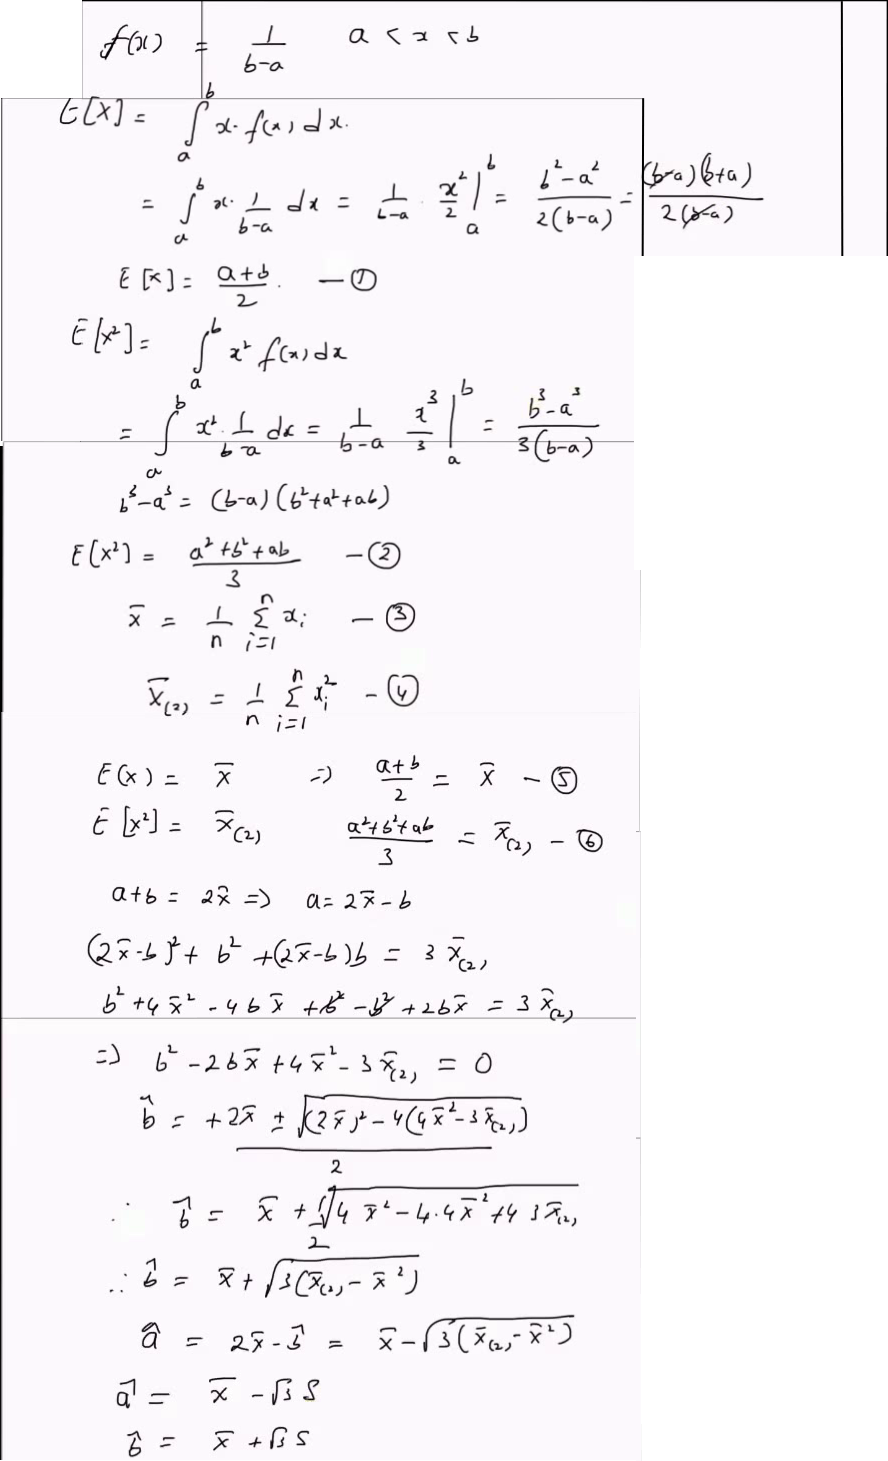 f(x) = 1/(b-a)   a < x < b
E[X] = ∫_a^b x. f(x) dx.
= ∫_a^b x. 1/(b-a) dx = 1/(b-a) . x²/2 |_a^b = (b²-a²)/(2(b-a)) = ((b-a)(b+a))/(2(b-a))
E[x] = (a+b)/2. —①
E[x²] = ∫_a^b x² f(x) dx
= ∫_a^b x². 1/(b-a) dx = 1/(b-a) x³/3 |_a^b = (b³-a³)/(3(b-a))
b³-a³ = (b-a)(b²+a²+ab)
E[x²] = (a²+b²+ab)/3 —②
x̄ = 1/n Σ_{i=1}^n x_i —③
x̄_(2) = 1/n Σ_{i=1}^n x_i² —④
E(x) = x̄ => (a+b)/2 = x̄ —⑤
E[x²] = x̄_(2)   (a²+b²+ab)/3 = x̄_(2) —⑥
a+b = 2x̄ => a = 2x̄-b
(2x̄-b)² + b² +(2x̄-b)b = 3 x̄_(2)
b² +4x̄² -4bx̄ +b² -b² +2bx̄ = 3 x̄_(2)
=> b² -2bx̄ +4x̄² -3x̄_(2) = 0
b̂ = (+2x̄ ± √((2x̄)² -4(4x̄²-3x̄_(2))))/2
∴ b̂ = x̄ + √(4x̄² -4.4x̄² +4 3x̄_(2))/2
∴ b̂ = x̄ + √(3(x̄_(2) - x̄²))
â = 2x̄-b̂ = x̄ - √(3(x̄_(2) - x̄²))
â = x̄ - √3 S
b̂ = x̄ + √3 S